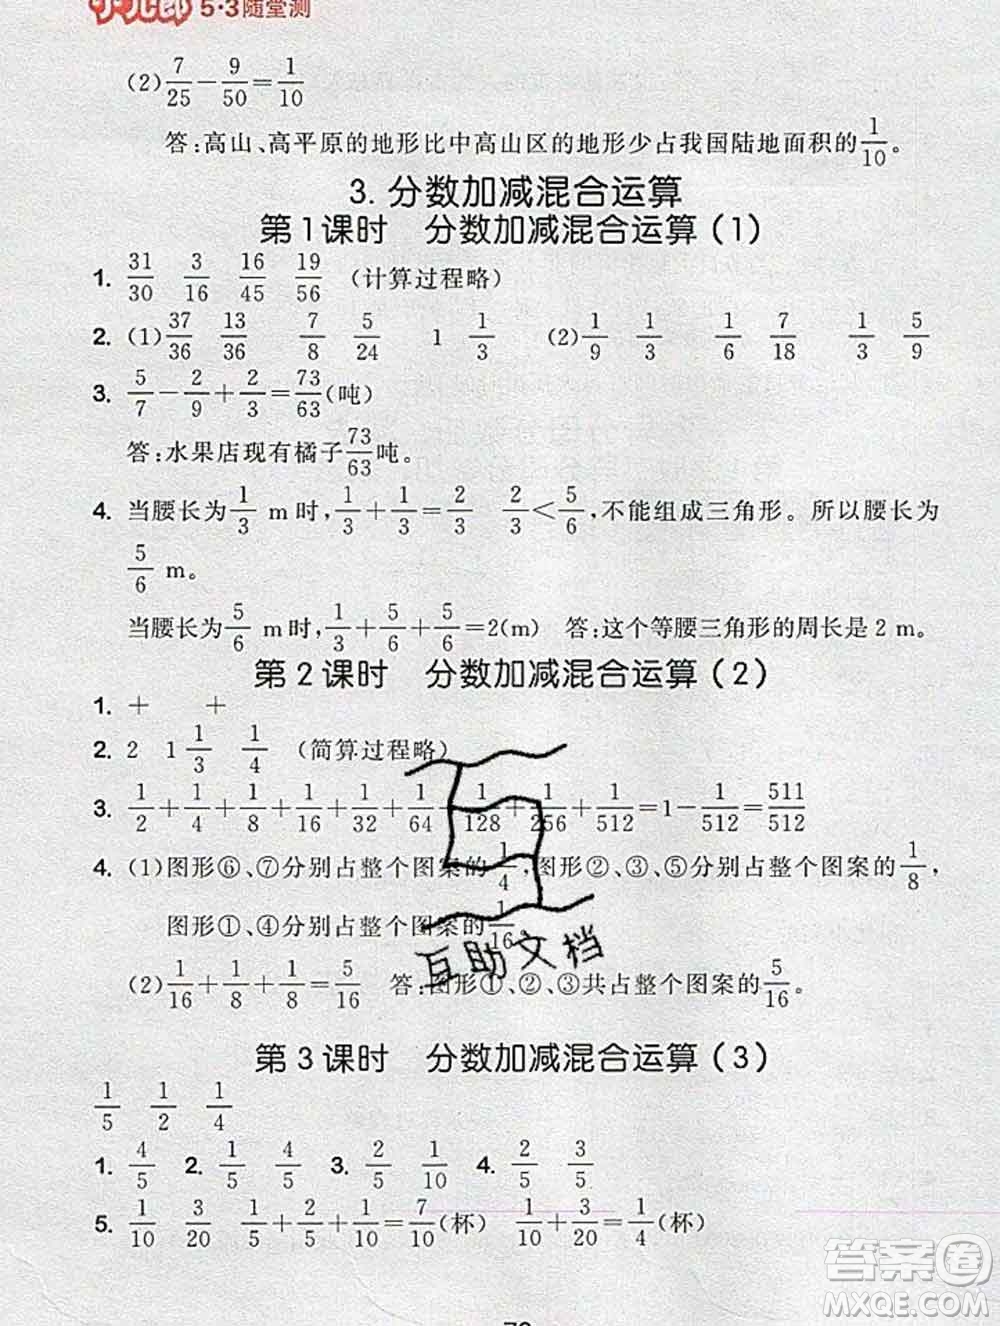 小儿郎 5·3随堂测
(2) 7/25 − 9/50 = 1/10
答:高山、高平原的地形比中高山区的地形少占我国陆地面积的 1/10。
3. 分数加减混合运算
第1课时 分数加减混合运算(1)
1. 31/30 3/16 16/45 19/56 (计算过程略)
2. (1) 37/36 13/36 7/8 5/24 1 1/3 (2) 1/9 1/3 1/2 7/18 1/3 5/9
3. 5/7 − 2/9 + 2/3 = 73/63(吨)
答:水果店现有橘子 73/63 吨。
4. 当腰长为 1/3 m时, 1/3 + 1/3 = 2/3 2/3 < 5/6,不能组成三角形。所以腰长为
5/6 m。
当腰长为 5/6 m时, 1/3 + 5/6 + 5/6 = 2(m) 答:这个等腰三角形的周长是2 m。
第2课时 分数加减混合运算(2)
1. + +
2. 2 1 1/3 1/4 (简算过程略)
3. 1/2 + 1/4 + 1/8 + 1/16 + 1/32 + 1/64 + 1/128 + 1/256 + 1/512 = 1 − 1/512 = 511/512
4. (1)图形⑥、⑦分别占整个图案的 1/4,图形②、③、⑤分别占整个图案的 1/8,
图形①、④分别占整个图案的 1/16。
互助文档
(2) 1/16 + 1/8 + 1/8 = 5/16 答:图形①、②、③共占整个图案的 5/16。
第3课时 分数加减混合运算(3)
1/5 1/2 1/4
1. 4/5 2. 1/5 4/5 3. 2/5 1/10 4. 2/5 3/5
5. 1/10 3/20 1/5 + 2/5 + 1/10 = 7/10(杯) 1/10 + 3/20 = 1/4(杯)
答案圈
MXQE.COM